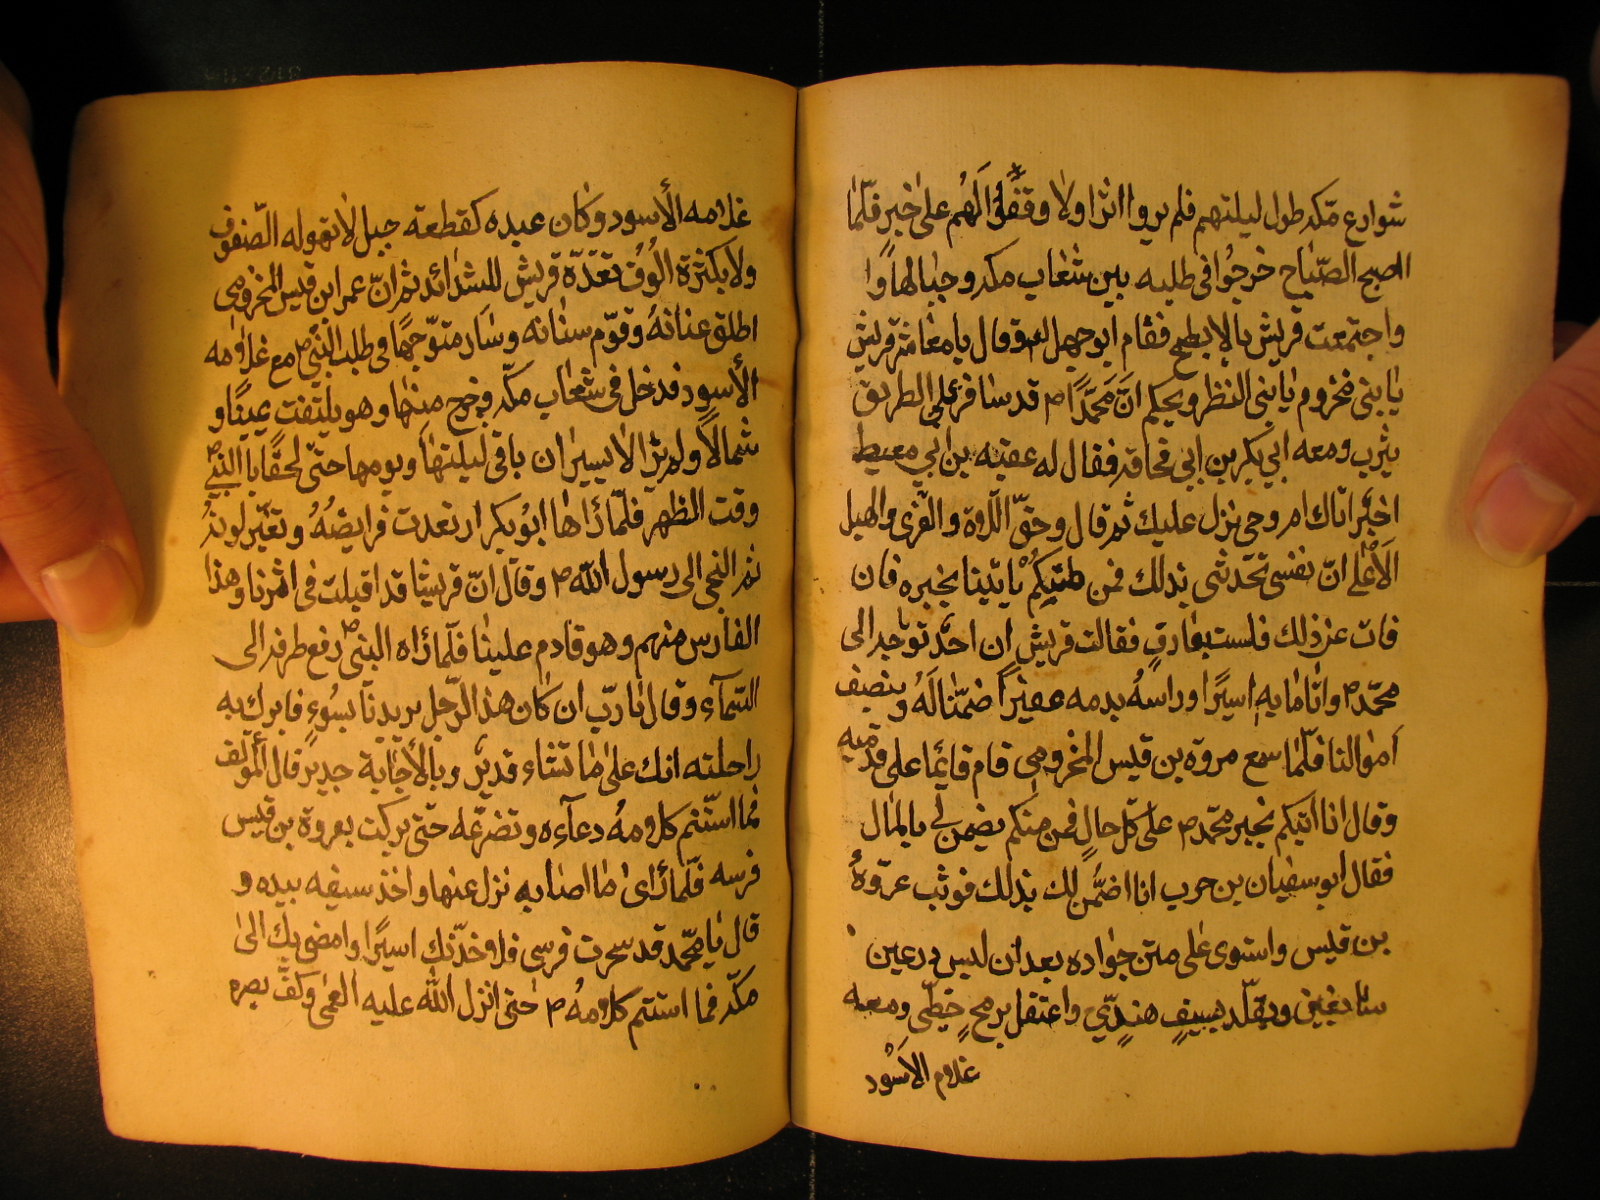 شوارع مكه طول ليلتهم فلم يروا اثرا ولا وقفوا لهم على خبر فلمّا
الصبح الصّباح خرجوا فى طلبه بين شعاب مكه وجبالها
واجتمعت قريش بالابطح فقام ابوجهل وقال يا معاشر قريش
يا بنى مخزوم يا بنى النظر ويحكم انّ محمّدًا م قد سافر على الطريق
يثرب ومعه ابى بكر بن ابى قحافه فقال له عقبه بن ابى معيط
اخبر اتاك ام وحى نزل عليك ثم قال وحقّ اللاة والعزى والهبل
الاعلى انّ نفسى تحدثنى بذلك فمن منكم ياتينا بخبره فان
فات عن ذلك فلست بفارق فقالت قريش ان احدّ توجه الى
محمّد م واتانا به اسيرًا وراسه بدمه عفيرًا ضمنّا له بنصف
اموالنا فلمّا سمع مروة بن قيس المخزومى قام قائمًا على قدميه
وقال انا اتيكم بخبر محمّد م على كلّ حال فمن منكم يضمن لى بالمال
فقال ابو سفيان بن حرب انا اضمن لك بذلك فوثب عروة
بن قيس واستوى على متن جواده بعد ان لبس درعين
سابغين وتقلّد بسيفٍ هنديّ واعتقل برمحٍ خطّى ومعه
غلام الاسود
غلامه الأسود وكان عبده كقطعة جبل لا تهوله الصّفوف
ولا بكثرة الوف تعدّه قريش للشدائد ثم انّ عمر ابن قيس المخزومى
اطلق عنانه وقوّم سنانه وسار متوجّهًا فى طلب النبى ص مع غلامه
الأسود فدخل فى شعاب مكّه وخرج منها وهو يلتفت يمينًا و
شمالًا ولم يزالا يسيران باقى ليلتها ويومها حتى لحقا با النبى ص
وقت الظهر فلمّا راها ابو بكر ارتعدت فرايصه وتغيّر لونه
ثم التجى الى رسول الله ص وقال انّ قريشا قد اقبلت فى اثرنا وهذا
الفارس منهم وهو قادم علينا فلمّا راه النبى ص رفع طرفه الى
السّمآء وقال يا ربّ ان كان هذا الرّجل يريدنا بسوءٍ فابرك به
راحلته انك على ما تشاء قدير وبالأجابة جدير قال المؤلف
فما استتم كلامه دعآءه وتضرّعه حتى بركت بعروة بن قيس
فرسه فلمّا رأى ما اصابه نزل عنها واخذ سيفه بيده و
قال يا محمّد قد سحرت فرسى فلاوخذنك اسيرًا وامضى بك الى
مكّه فما استتم كلامه ص حتى انزل الله عليه العمى وكفّ بصره